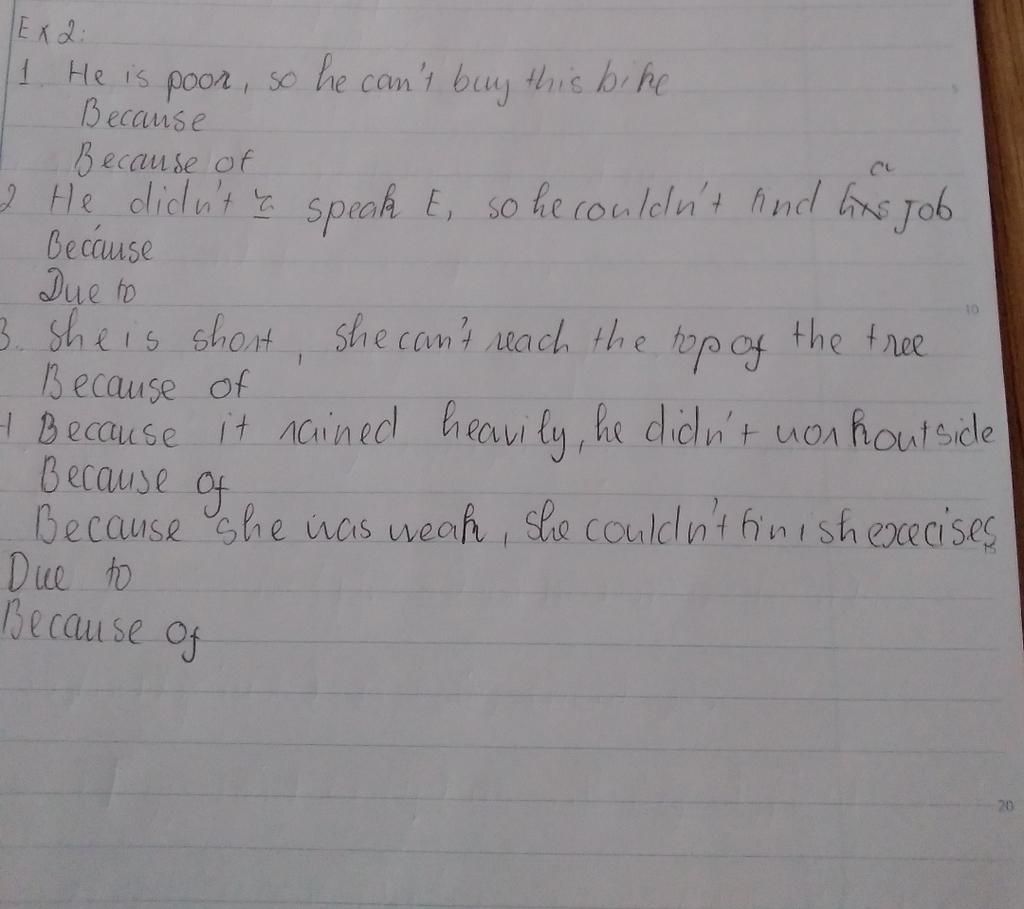 Ex 2:
1 He is poor, so he can't buy this bike
Because
Because of
2 He didn't speak E, so he couldn't find a job
Because
Due to
3. She is short, she can't reach the top of the tree
Because of
4 Because it rained heavily, he didn't work outside
Because of
Because she was weak, she couldn't finish execises
Due to
Because of
10
20